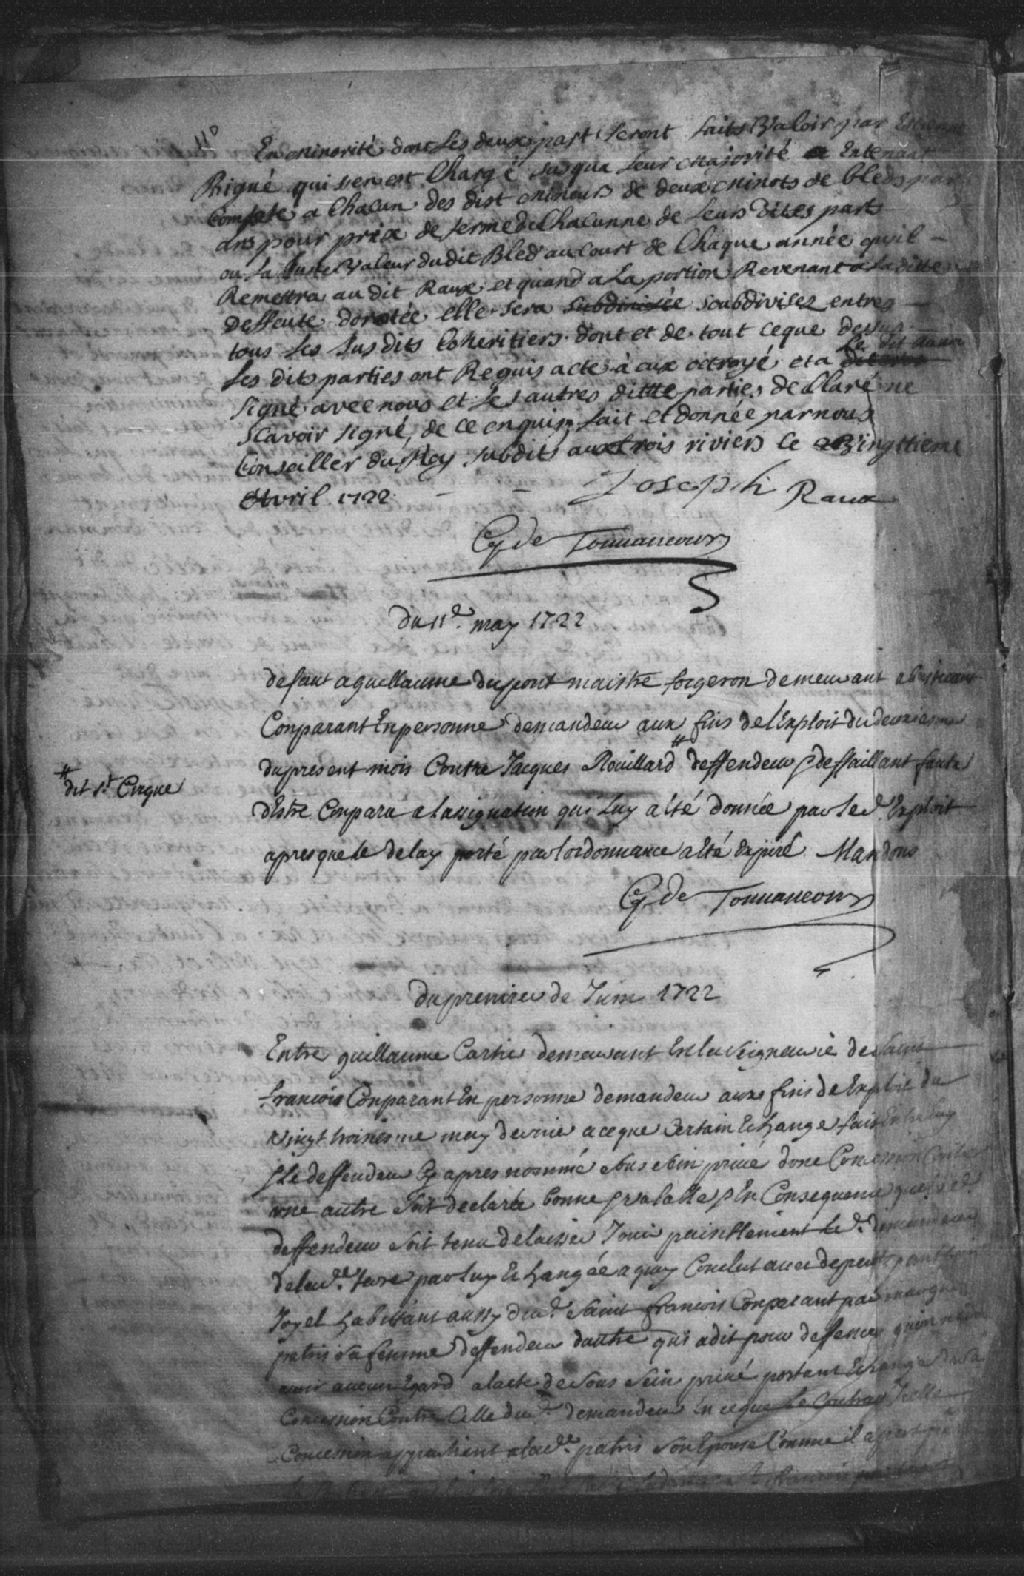 11º
En minorité dont les deux part seront faits Valoir par Estienne
Bigué qui s'en est Chargé jusqua leur Majorité en tenant
Compte a Chacun des dist mineurs de deux minots de bleds par
ans pour prix de ferme de Chacunne de leurs dites parts
ou la Juste Valeur du dit Bled au Court de Chaque année qu'il
Remettra au dit Raux et quand a la portion Revenant a la ditte
deffeute dorotée elle sera subdivisée soubdivisez entres
tous les susdits Coheritiers dont et de tout ceque dessus
les dits parties ont Requis acte à eux octroyé et a le dit Raux
signé avec nous et les autres ditte parties declaré ne
scavoir signé, de ce enquis fait et donnée par nous
Conseiller du Roy susdit aux trois riviers ce Vingttieme
Avril 1722 - - Joseph Raux
G de Tonnancour
du 11e. may 1722
defaut a guillaume dupont maistre forgeron demeurant a
Conparant En personne demandeur aux fins de l'Exploit du deuxiesme
du present mois Contre Jacques Rouillard # deffendeur & deffaillant faute
# dit St Cirque
d'Estre Conparu a l'assignation qui luy a Eté donnée par led. Exploit
apres que le delay porté par l'ordonnance a Eté Expiré Mandons
G de Tonnancour
du premier de Juin 1722
Entre guillaume Cartie demeurant En la seigneurie de Saint
francois Conparant En personne demandeur aux fins de Exploit du
Vingt troiziesme may dernier a ceque Certain Echange fait Entre luy
& le deffendeur Cy apres nommé sous sein privé d'une Concession Contre
une autre soit declarée bonne & valable & En Consequence que led.
deffendeur soit tenu delaisser Jouir paisiblement led. demandeur
de lade. terre par luy Echangée a quoy Conclut avec depens
Joyel habitant aussy dud. Saint francois Conparant par margueritte
patris sa femme deffendeur d'autre qui a dit pour deffences
avoir aucun Egard a l'acte de sous sein privé portant Echange de sa
Concession Contre Celle dud. demandeur En ceque Le Contrat d'icelle
Concession appartient a lade. patris son Epouse Comme il apert